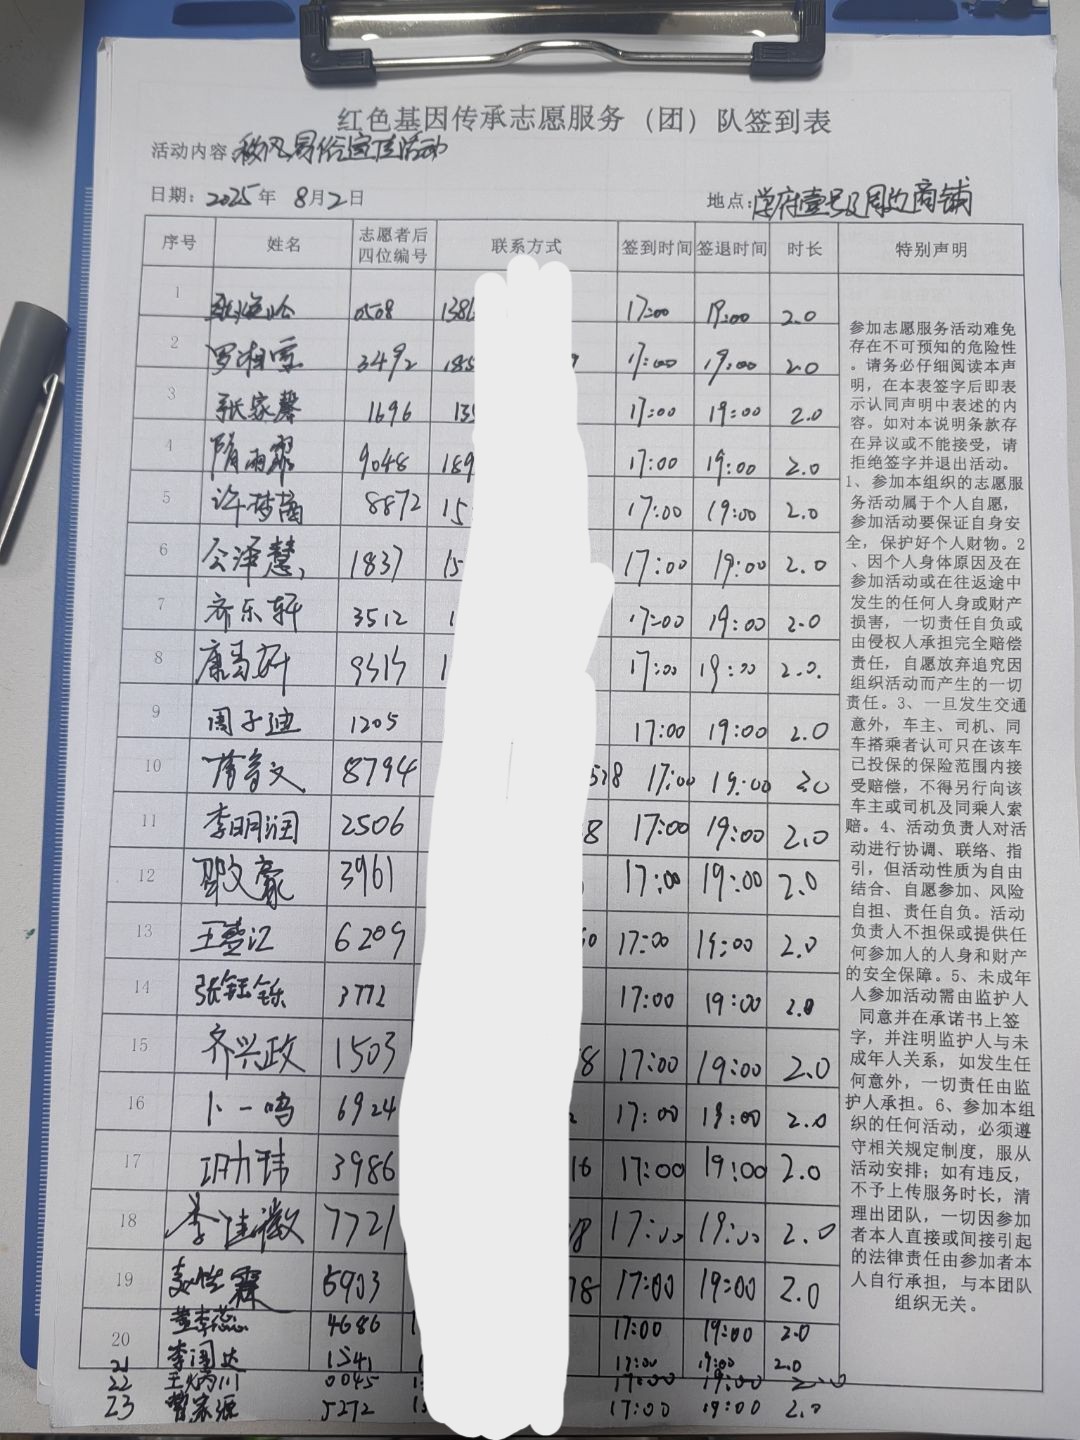 红色基因传承志愿服务（团）队签到表
活动内容 移风易俗宣传活动
日期：2025年 8月2日 地点：学府壹号及周边商铺
序号 姓名 志愿者后四位编号 联系方式 签到时间 签退时间 时长 特别声明
1 0508 1386 17:00 19:00 2.0
2 罗湘雲 3492 185 17:00 19:00 2.0
3 张家馨 1696 135 17:00 19:00 2.0
4 隋雨霏 9048 189 17:00 19:00 2.0
5 许梦菡 8872 15 17:00 19:00 2.0
6 泽慧 1837 15 17:00 19:00 2.0
7 齐乐轩 3512 1 17:00 19:00 2.0
8 康 轩 1 17:00 19:00 2.0.
9 周子迪 1205 17:00 19:00 2.0
10 文 8794 528 17:00 19:00 2.0
11 李明润 2506 8 17:00 19:00 2.0
12 邵文豪 3961 17:00 19:00 2.0
13 王 江 6209 50 17:00 19:00 2.0
14 张钰铄 3772 17:00 19:00 2.0
15 齐兴政 1503 8 17:00 19:00 2.0
16 卜一鸣 6924 17:00 19:00 2.0
17 玮 3986 16 17:00 19:00 2.0
18 李佳徽 7721 8 17:00 19:00 2.0
19 霖 6903 78 17:00 19:00 2.0
20 董李蕊 4686 1 17:00 19:00 2.0
21 李润达 1541 17:00 19:00 2.0
22 王炳川 0045 1 17:00 19:00 2.0
23 曹家源 5272 17:00 19:00 2.0
参加志愿服务活动难免
存在不可预知的危险性
。请务必仔细阅读本声
明，在本表签字后即表
示认同声明中表述的内
容。如对本说明条款存
在异议或不能接受，请
拒绝签字并退出活动。
1、参加本组织的志愿服
务活动属于个人自愿，
参加活动要保证自身安
全，保护好个人财物。2
、因个人身体原因及在
参加活动或在往返途中
发生的任何人身或财产
损害，一切责任自负或
由侵权人承担完全赔偿
责任，自愿放弃追究因
组织活动而产生的一切
责任。3、一旦发生交通
意外，车主、司机、同
车搭乘者认可只在该车
已投保的保险范围内接
受赔偿，不得另行向该
车主或司机及同乘人索
赔。4、活动负责人对活
动进行协调、联络、指
引，但活动性质为自由
结合、自愿参加、风险
自担、责任自负。活动
负责人不担保或提供任
何参加人的人身和财产
的安全保障。5、未成年
人参加活动需由监护人
同意并在承诺书上签
字，并注明监护人与未
成年人关系，如发生任
何意外，一切责任由监
护人承担。6、参加本组
织的任何活动，必须遵
守相关规定制度，服从
活动安排；如有违反，
不予上传服务时长，清
理出团队，一切因参加
者本人直接或间接引起
的法律责任由参加者本
人自行承担，与本团队
组织无关。